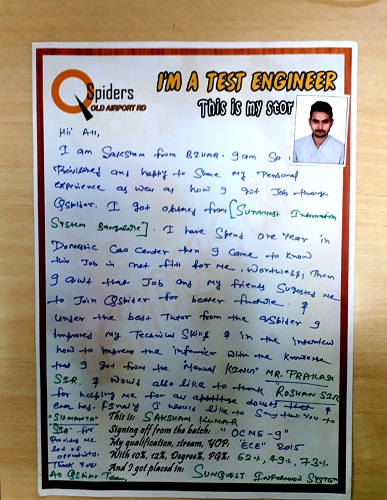 QSpiders
OLD AIRPORT RD
I'M A TEST ENGINEER
This is my stor
Hii All,
I am Saksham from BIHAR. I am So
Privileged and happy to Share my Personal
experience as well as how I got Job through
QSpider. I got offered from [Sunquest Information
System Bangalore]. I have Spend one year in
Domestic Call Center then I came to know
this Job is not fit for me. Then
I quit that Job and my friends Sugested me
to Join QSpider for better future. I
under the best Tutor from the QSpider I
Improved my Technical Skill & in the interview
how to impress the with the Knowledge
that I got from the Manual KING" MR. PRAKASH
SIR. I Would also like to thank "ROSHAN SIR
for helping me for an doubts that I
ever had. Finally I would like to Say thank You to
"SUMANTH"
SIR" for
Provide me
lot of
Thank You
All QSpider Team.
This is: SAKSHAM KUMAR
Signing off from the batch: "OCME-9"
My qualification, stream, YOP: "ECE" 2015
With 10%, 12%, Degree%, PG%: 62%, 49%, 73%
And I got placed in: SUNQUEST INFORMATION SYSTEM